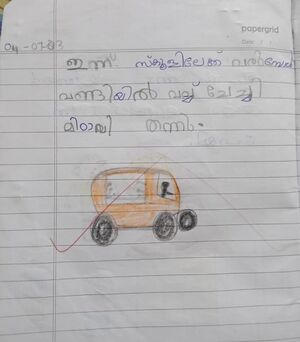 papergrid
Date: / /
04-07-23
ഇന്ന് സ്കൂളിലേക്ക് വരുമ്പോൾ
വണ്ടിയിൽ വച്ച് ചേച്ചി
മിഠായി തന്നു.